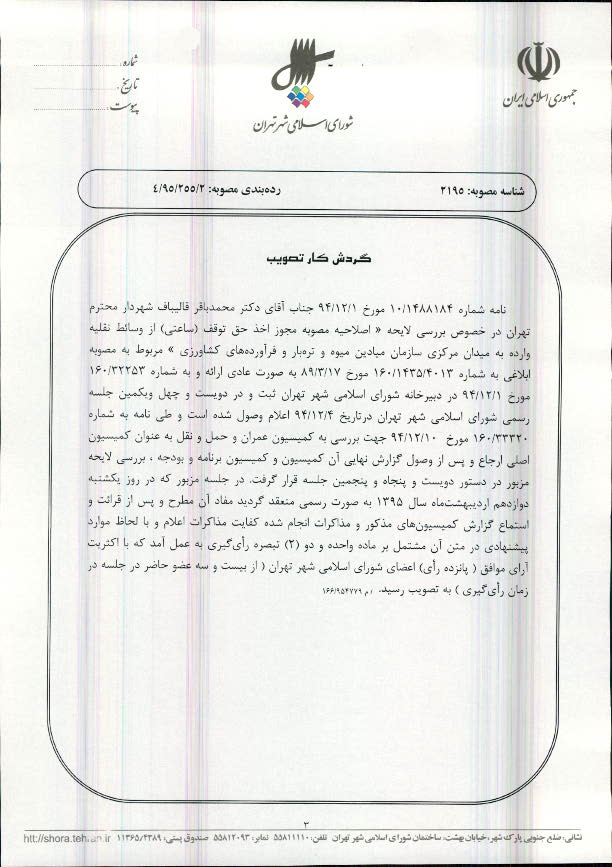 جمهوری اسلامی ایران
شورای اسلامی شهر تهران
شماره:
تاریخ:
پیوست:
شناسه مصوبه: ۲۱۹۵
رده‌بندی مصوبه: ۴/۹۵/۲۵۵/۲
گردش کار تصویب
نامه شماره ۱۰/۱۴۸۸۱۸۴ مورخ ۹۴/۱۲/۱ جناب آقای دکتر محمدباقر قالیباف شهردار محترم
تهران در خصوص بررسی لایحه « اصلاحیه مصوبه مجوز اخذ حق توقف (ساعتی) از وسائط نقلیه
وارده به میدان مرکزی سازمان میادین میوه و تره‌بار و فرآورده‌های کشاورزی » مربوط به مصوبه
ابلاغی به شماره ۱۶۰/۱۴۳۵/۴۰۱۳ مورخ ۸۹/۳/۱۷ به صورت عادی ارائه و به شماره ۱۶۰/۳۲۲۵۳
مورخ ۹۴/۱۲/۱ در دبیرخانه شورای اسلامی شهر تهران ثبت و در دویست و چهل ویکمین جلسه
رسمی شورای اسلامی شهر تهران درتاریخ ۹۴/۱۲/۴ اعلام وصول شده است و طی نامه به شماره
۱۶۰/۳۳۳۲۰ مورخ ۹۴/۱۲/۱۰ جهت بررسی به کمیسیون عمران و حمل و نقل به عنوان کمیسیون
اصلی ارجاع و پس از وصول گزارش نهایی آن کمیسیون و کمیسیون برنامه و بودجه ، بررسی لایحه
مزبور در دستور دویست و پنجاه و پنجمین جلسه قرار گرفت. در جلسه مزبور که در روز یکشنبه
دوازدهم اردیبهشت‌ماه سال ۱۳۹۵ به صورت رسمی منعقد گردید مفاد آن مطرح و پس از قرائت و
استماع گزارش کمیسیون‌های مذکور و مذاکرات انجام شده کفایت مذاکرات اعلام و با لحاظ موارد
پیشنهادی در متن آن مشتمل بر ماده واحده و دو (۲) تبصره رأی‌گیری به عمل آمد که با اکثریت
آرای موافق ( پانزده رأی) اعضای شورای اسلامی شهر تهران ( از بیست و سه عضو حاضر در جلسه در
زمان رأی‌گیری ) به تصویب رسید. /م ۱۶۶/۹۵۴۷۷۹
۳
نشانی: ضلع جنوبی پارک شهر، خیابان بهشت، ساختمان شورای اسلامی شهر تهران تلفن: ۵۵۸۱۱۱۱۰ نمابر: ۵۵۸۱۲۰۹۳ صندوق پستی: ۱۱۳۶۵/۴۳۸۹ htt://shora.tehran.ir